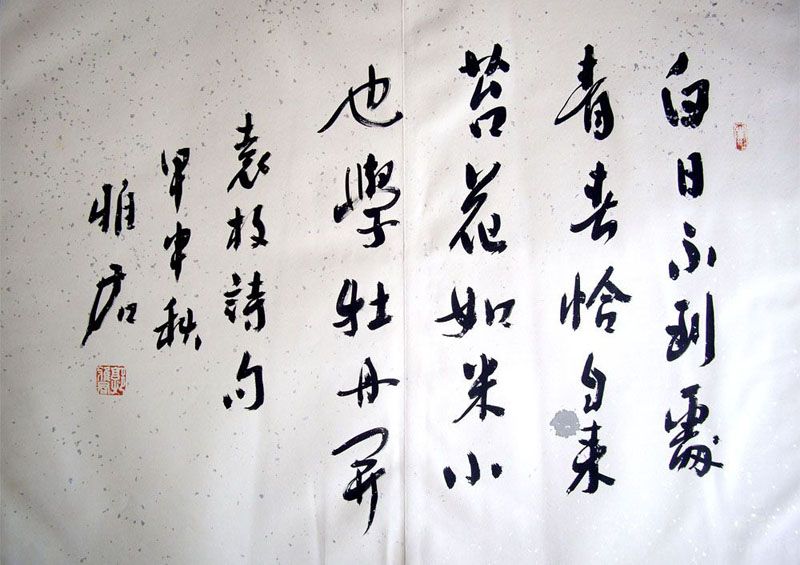 白日不到處
青春恰自来
苔花如米小
也學牡丹開
袁枚詩句
甲申秋
雅君